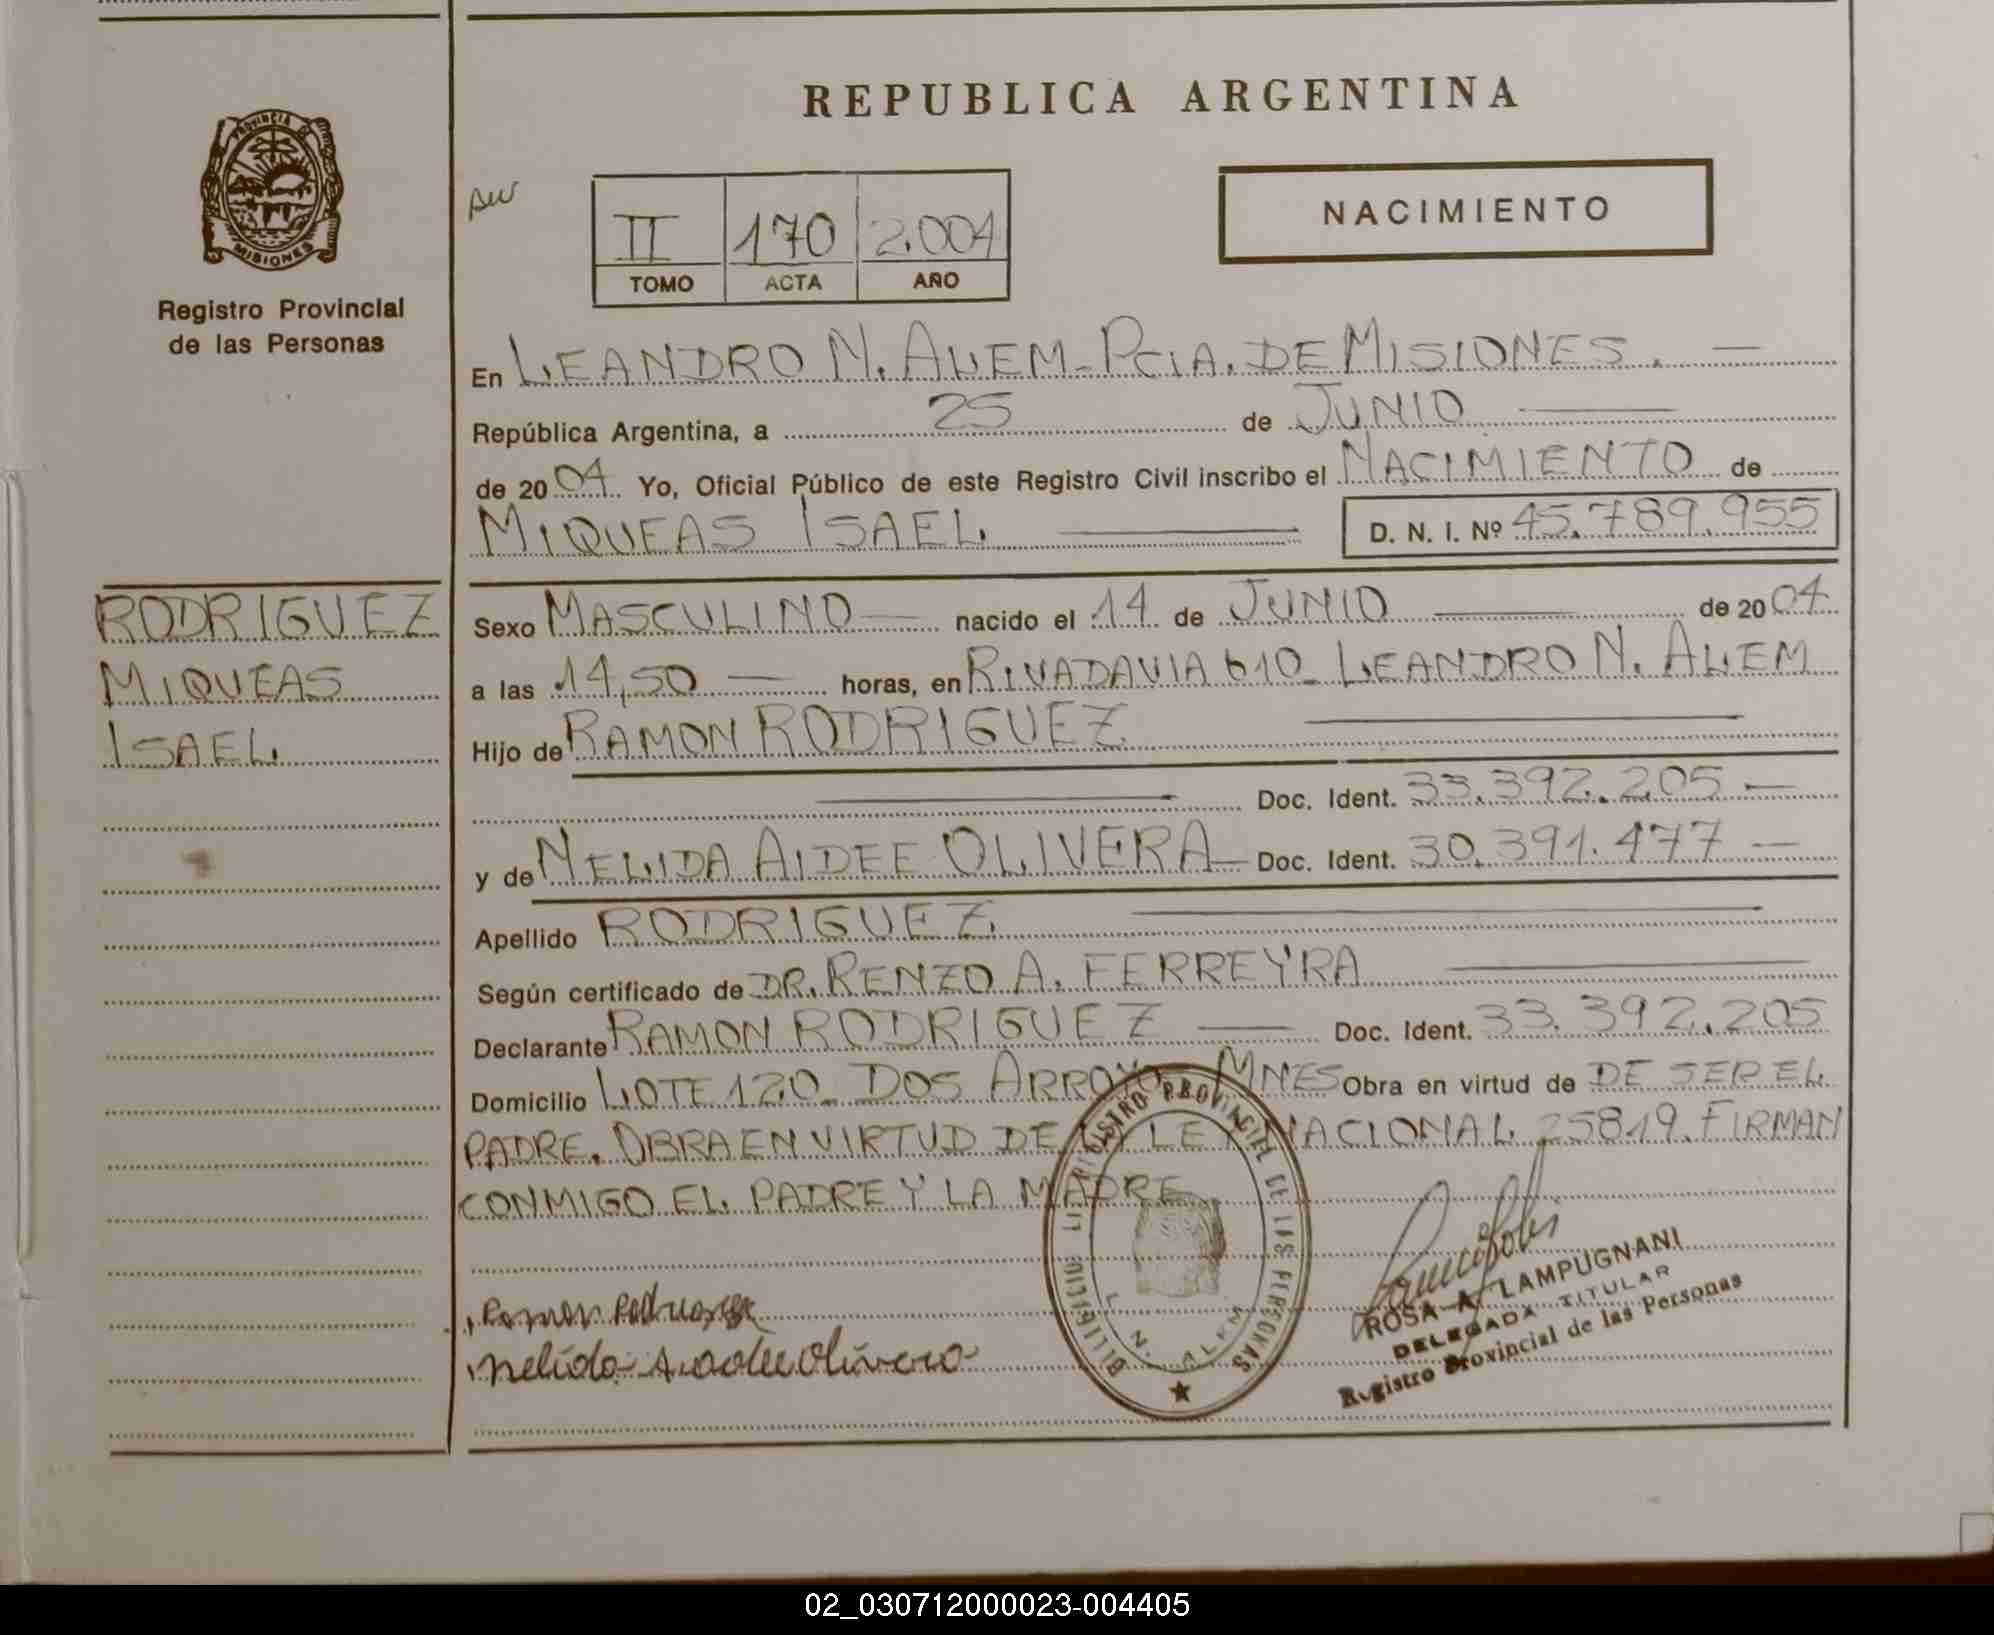 REPUBLICA ARGENTINA
PROVINCIA DE
MISIONES
Registro Provincial
de las Personas
II 170 2.004
TOMO ACTA AÑO
NACIMIENTO
En LEANDRO N. ALEM - PCIA. DE MISIONES. —
República Argentina, a 25 de JUNIO —
de 20 04 Yo, Oficial Público de este Registro Civil inscribo el NACIMIENTO de
MIQUEAS ISAEL — D. N. I. Nº 45.789.955
RODRIGUEZ
MIQUEAS
ISAEL
Sexo MASCULINO — nacido el 14 de JUNIO — de 20 04
a las 14,50 — horas, en RIVADAVIA 610 - LEANDRO N. ALEM
Hijo de RAMON RODRIGUEZ —
— Doc. Ident. 33.392.205 —
y de NELIDA AIDEE OLIVERA — Doc. Ident. 30.391.477 —
Apellido RODRIGUEZ —
Según certificado de DR. RENZO A. FERREYRA —
Declarante RAMON RODRIGUEZ — Doc. Ident. 33.392.205
Domicilio LOTE 120 - DOS ARROYO MNES Obra en virtud de DE SER EL
PADRE. OBRA EN VIRTUD DE LA LEY NACIONAL 25819. FIRMAN
CONMIGO EL PADRE Y LA MADRE
REGISTRO PROVINCIAL DE LAS PERSONAS
L. N. ALEM
Ramon Rodriguez
Nelida Olivera
ROSA A. LAMPUGNANI
DELEGADA TITULAR
Registro Provincial de las Personas
02_030712000023-004405